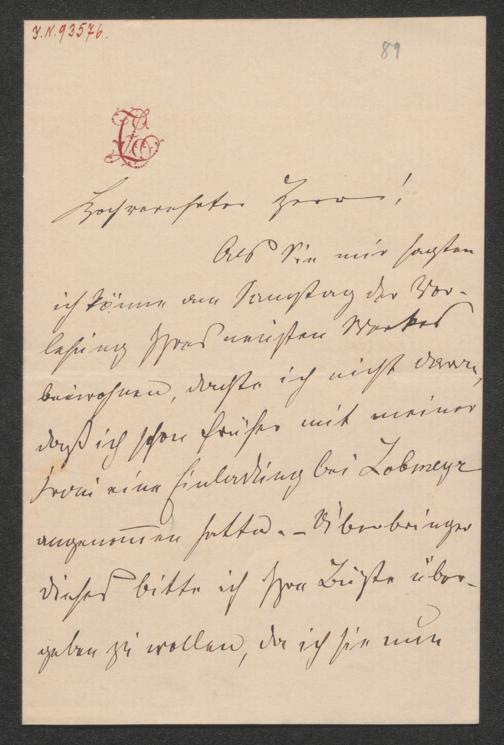 J.N. 93576.
89
Hochverehrter Herr!
Als Sie mir sagten
ich könne am Samstag der Vor-
lesung Ihres neusten Werkes
beiwohnen, dachte ich nicht daran,
daß ich schon früher mit meiner
Frau eine Einladung bei Lobmeyr
angenommen hatte. – Überbringer
dieses bitte ich Ihre Büste über-
geben zu wollen, da ich sie nun